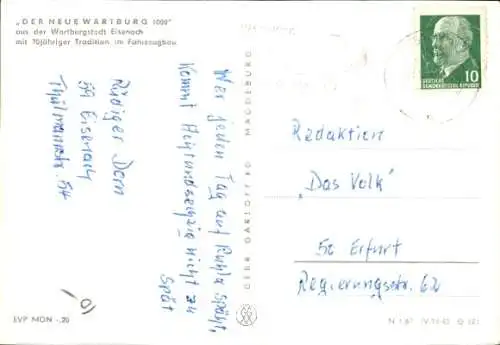 „DER NEUE WARTBURG 1000"
aus der Wartburgstadt Eisenach
mit 70jähriger Tradition im Fahrzeugbau
Wer jeden Tag auf Ruhla späht,
kommt Achtundsechzig nicht zu
spät
Rüdiger Dorn
59 Eisenach
Thälmannstr. 54
EVP MDN -,20
GEBR. GARLOFF KG MAGDEBURG
10
DEUTSCHE
DEMOKRATISCHE REPUBLIK
Redaktion
„Das Volk"
50 Erfurt
Regierungsstr. 62